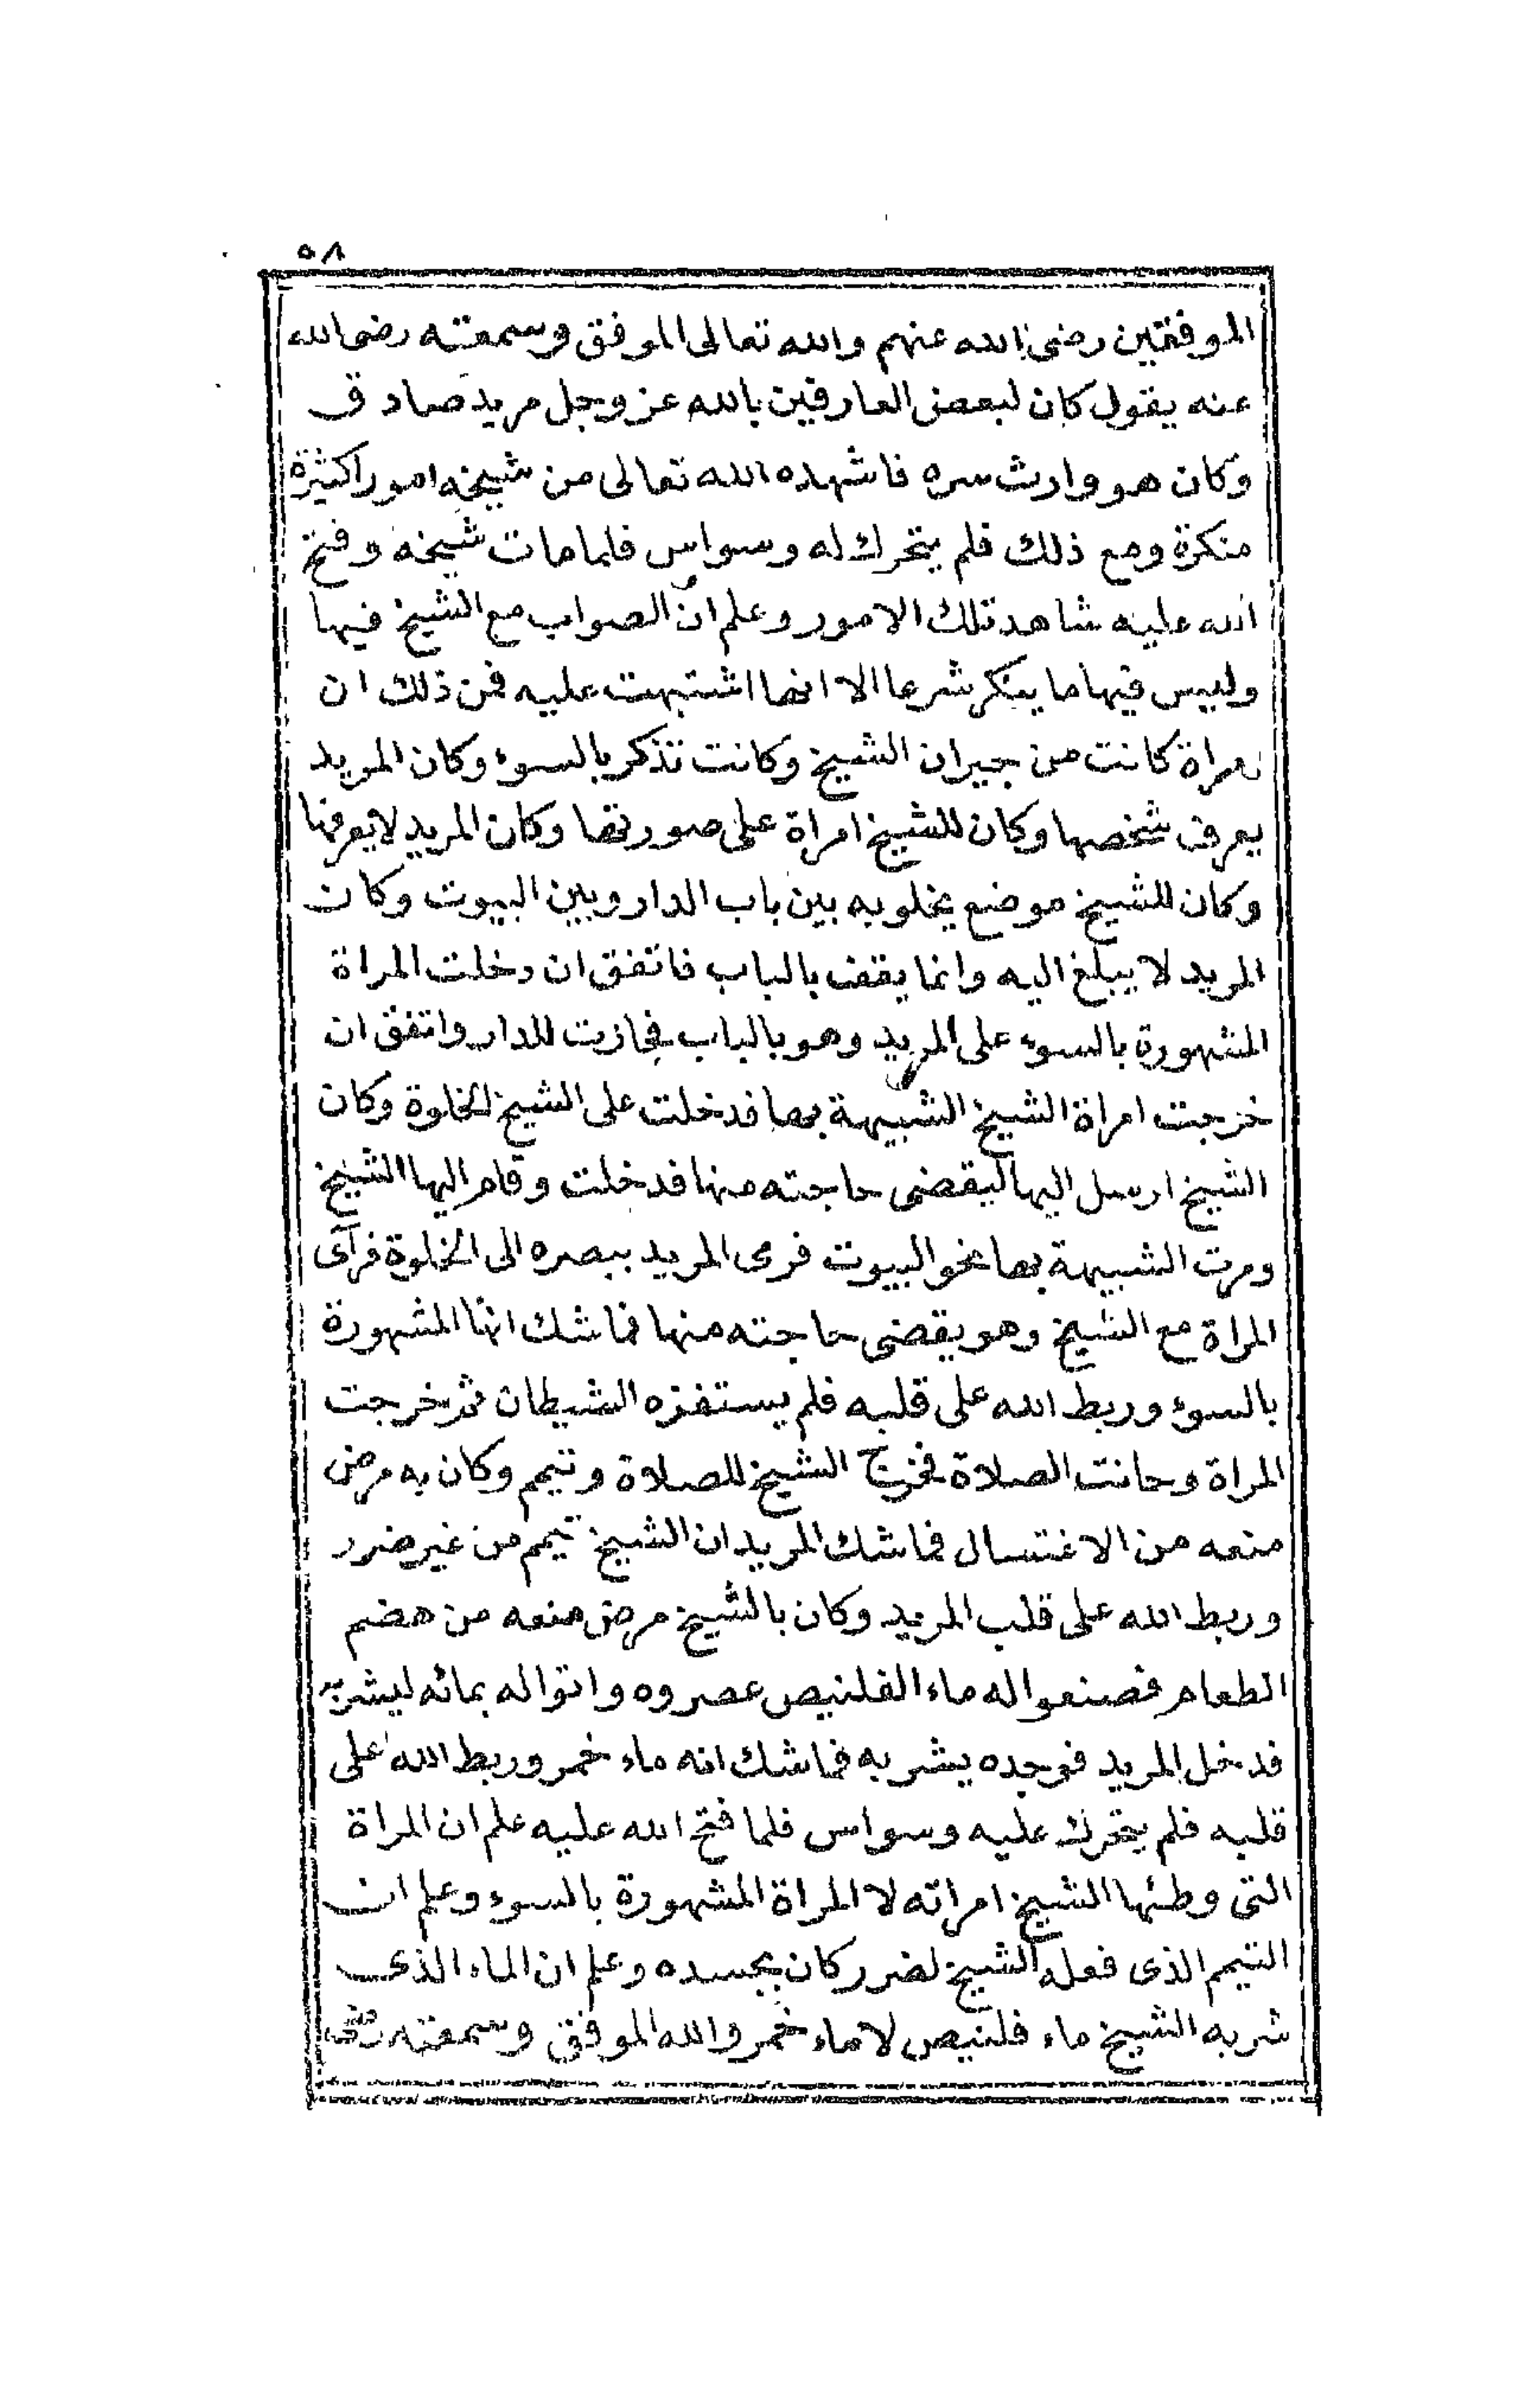 ٥٨
الموفقين رضى الله عنهم والله تعالى الموفق وسمعته رضى الله
عنه يقول كان لبعض العارفين بالله عز وجل مريد صادق
وكان هو وارث سره فاشهده الله تعالى من شيخه امورا كثيرة
منكرة ومع ذلك فلم يتحرك له وسواس فلما مات شيخه وفتح
الله عليه شاهد تلك الامور وعلم ان الصواب مع الشيخ فيها
وليس فيها ما ينكر شرعا الا انها اشتبهت عليه فمن ذلك ان
امراة كانت من جيران الشيخ وكانت تذكر بالسوء وكان المريد
يعرف شخصها وكان للشيخ امراة على صورتها وكان المريد لا يعرفها
وكان للشيخ موضع يخلو به بين باب الدار وبين البيوت وكان
المريد لا يبلغ اليه وانما يقف بالباب فاتفق ان دخلت المراة
المشهورة بالسوء على المريد وهو بالباب فجازت للدار واتفق ان
خرجت امراة الشيخ الشبيهة بها فدخلت على الشيخ الخلوة وكان
الشيخ ارسل اليها ليقضى حاجته منها فدخلت وقام اليها الشيخ
ومرت الشبيهة بها نحو البيوت فرمى المريد ببصره الى الخلوة فرآى
المراة مع الشيخ وهو يقضى حاجته منها فما شك انها المشهورة
بالسوء وربط الله على قلبه فلم يستفزه الشيطان ثم خرجت
المراة وحانت الصلاة فخرج الشيخ للصلاة وتيمم وكان به مرض
منعه من الاغتسال فما شك المريد ان الشيخ تيمم من غير ضرر
وربط الله على قلب المريد وكان بالشيخ مرض منعه من هضم
الطعام فصنعوا له ماء الفلنيص عصروه واتوا له بمائه ليشربه
فدخل المريد فوجده يشربه فما شك انه ماء خمر وربط الله على
قلبه فلم يتحرك عليه وسواس فلما فتح الله عليه علم ان المراة
التى وطئها الشيخ امراته لا المراة المشهورة بالسوء وعلم ان
التيمم الذى فعله الشيخ لضرر كان بجسده وعلم ان الماء الذى
شربه الشيخ ماء فلنيص لا ماء خمر والله الموفق وسمعته رضى